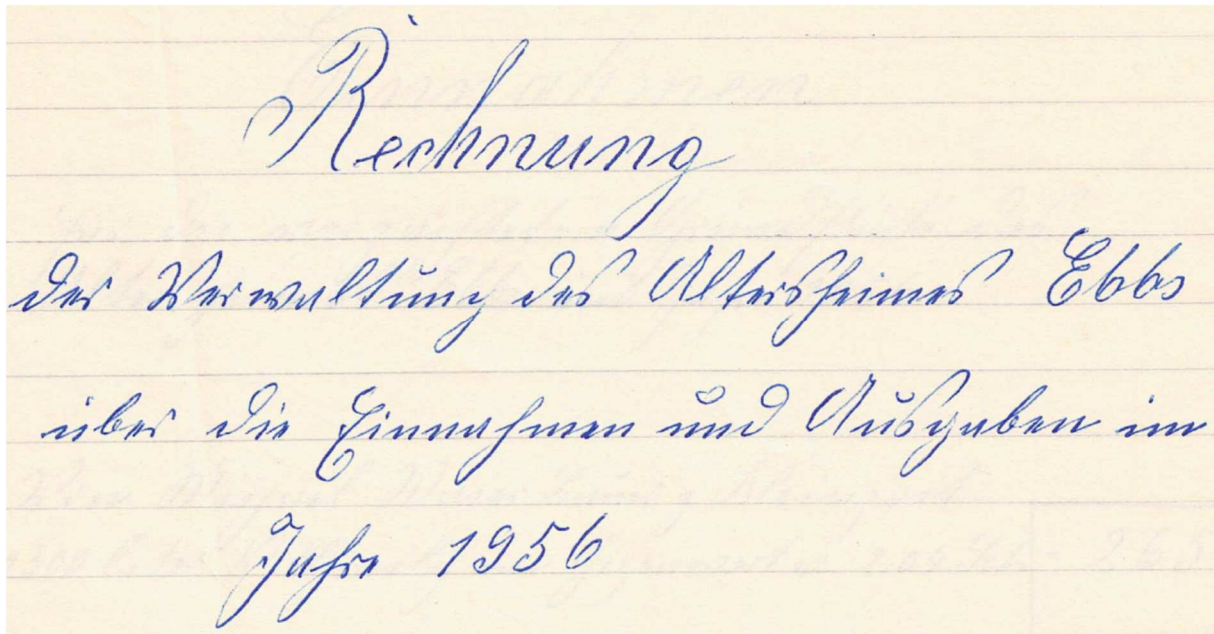 Rechnung
der Verwaltung des Altersheimes Ebbs
über die Einnahmen und Ausgaben im
Jahre 1956